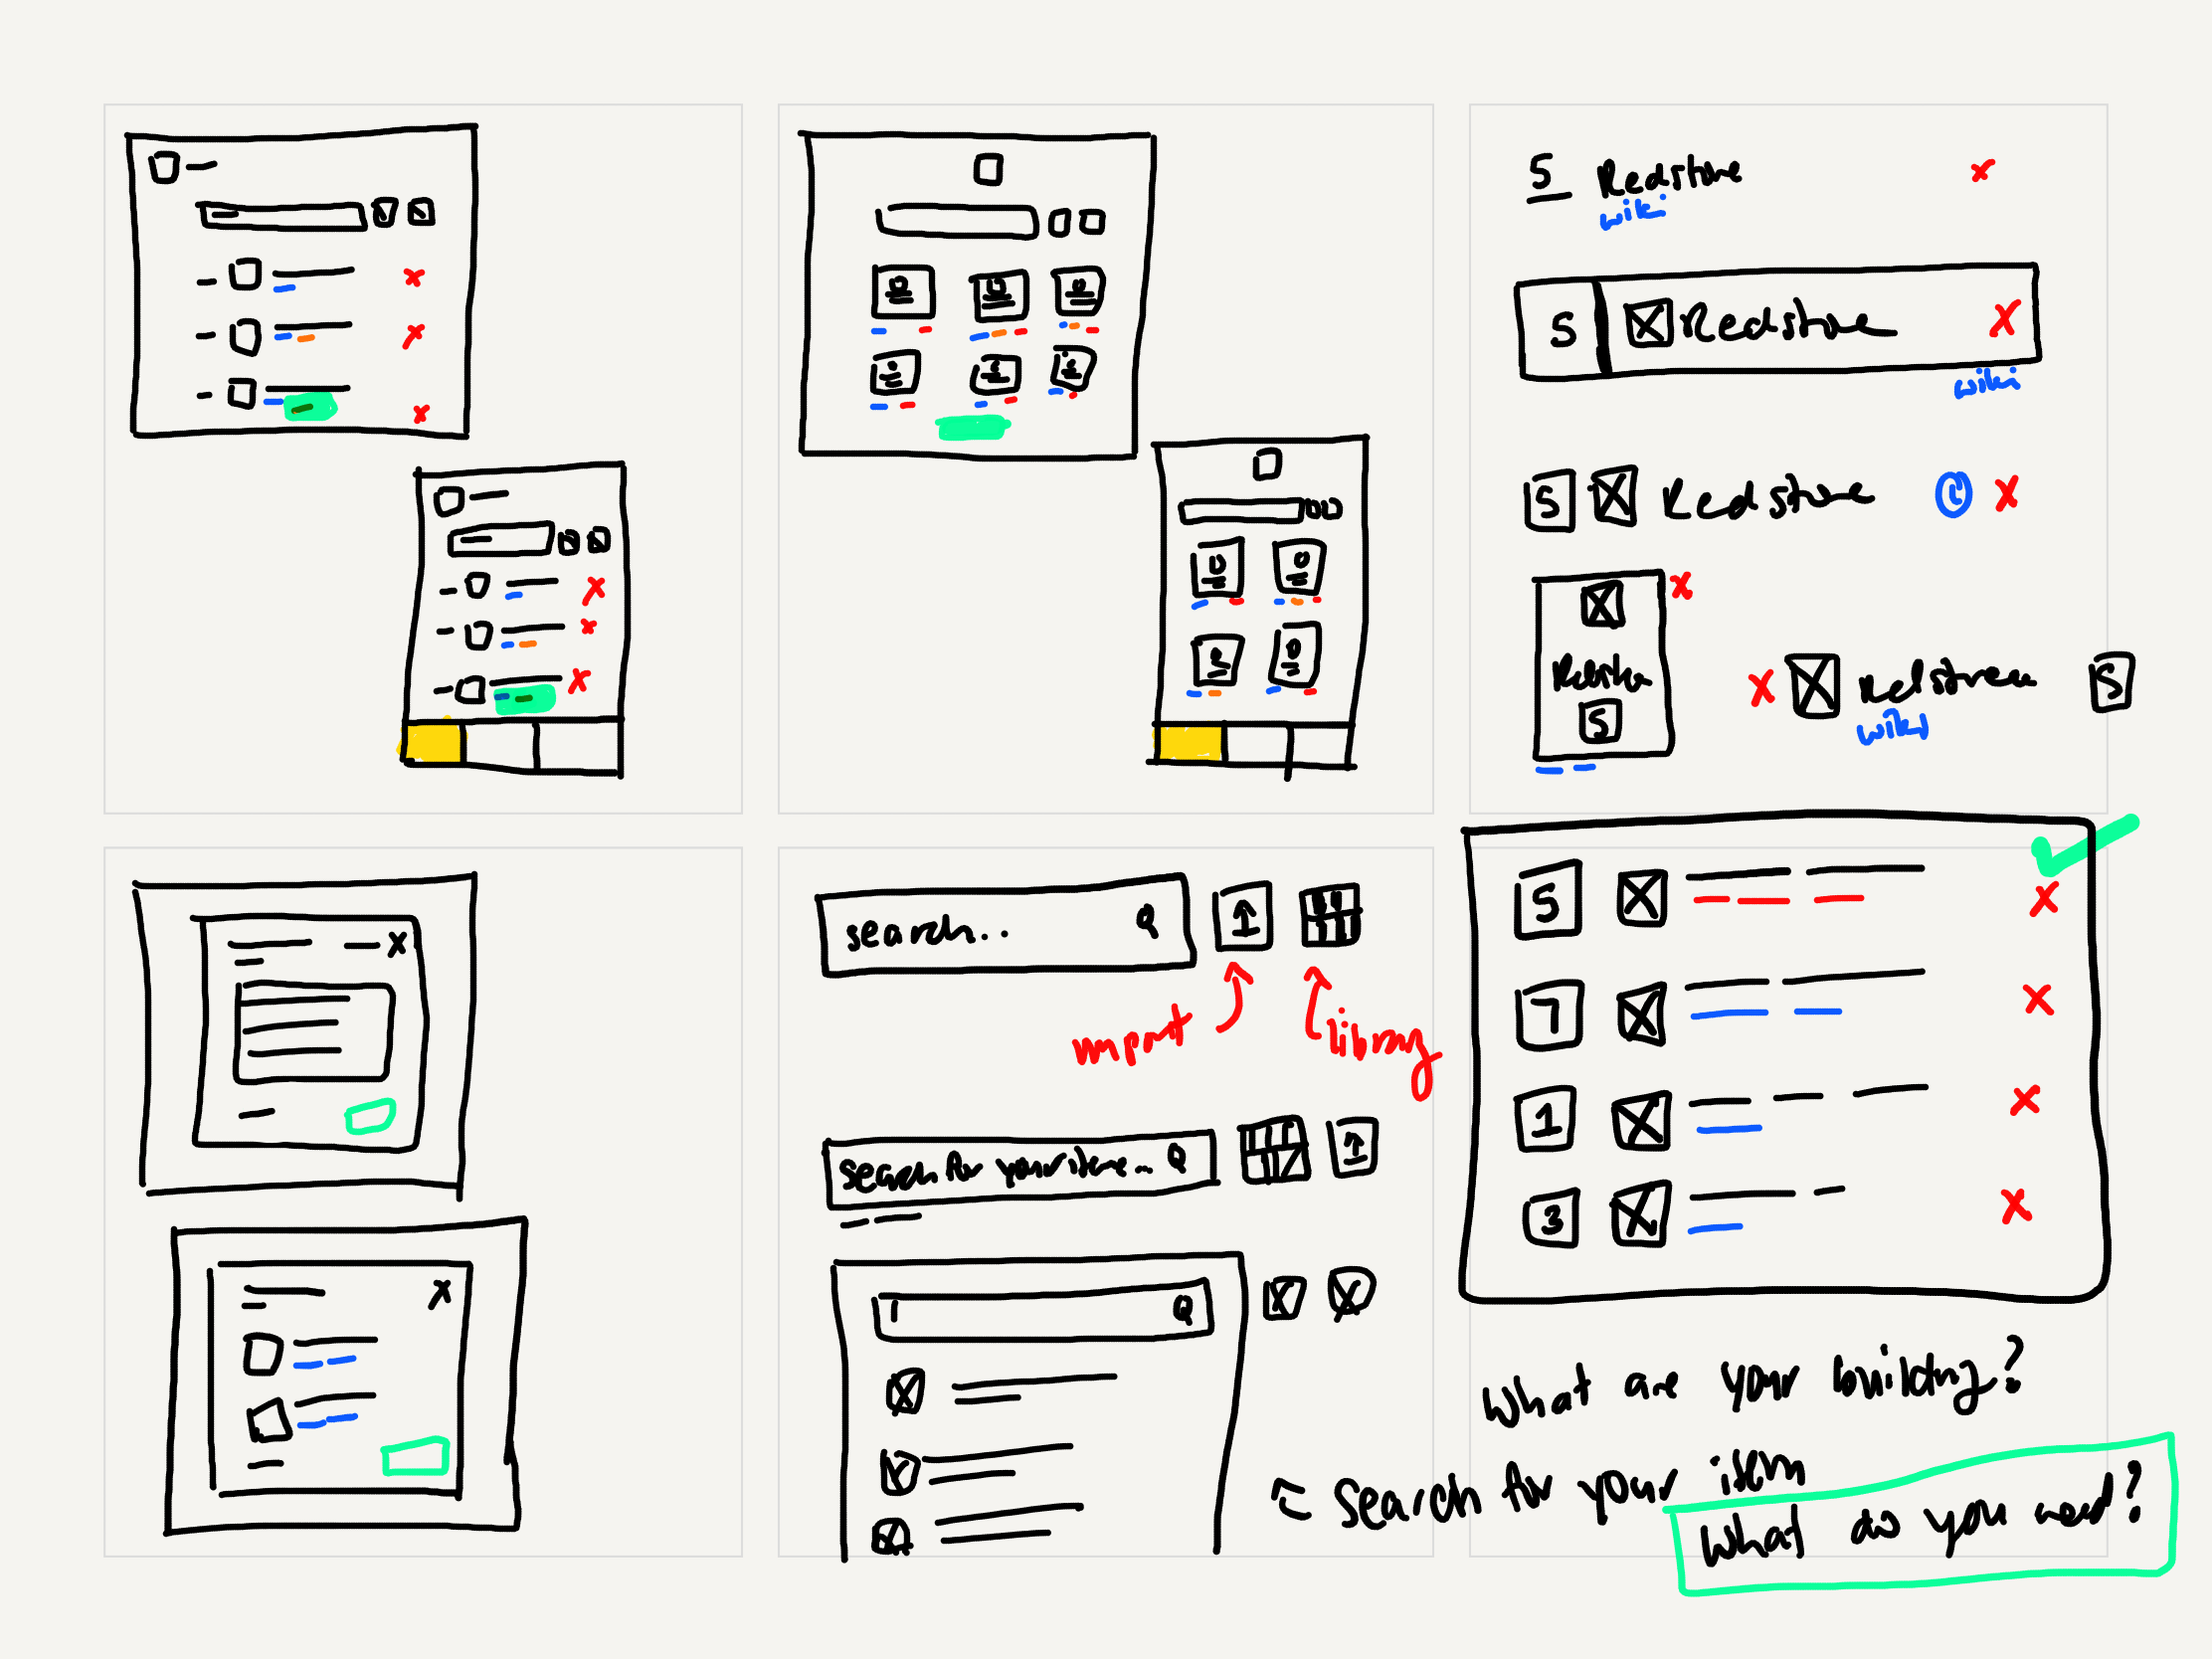 S Redstone
wiki
S Redstone
wiki
S Redstone
S
Redstone
wiki
S
search..
import
library
search for your item...
5
7
1
3
What are your building?
Search for your item
What do you need?